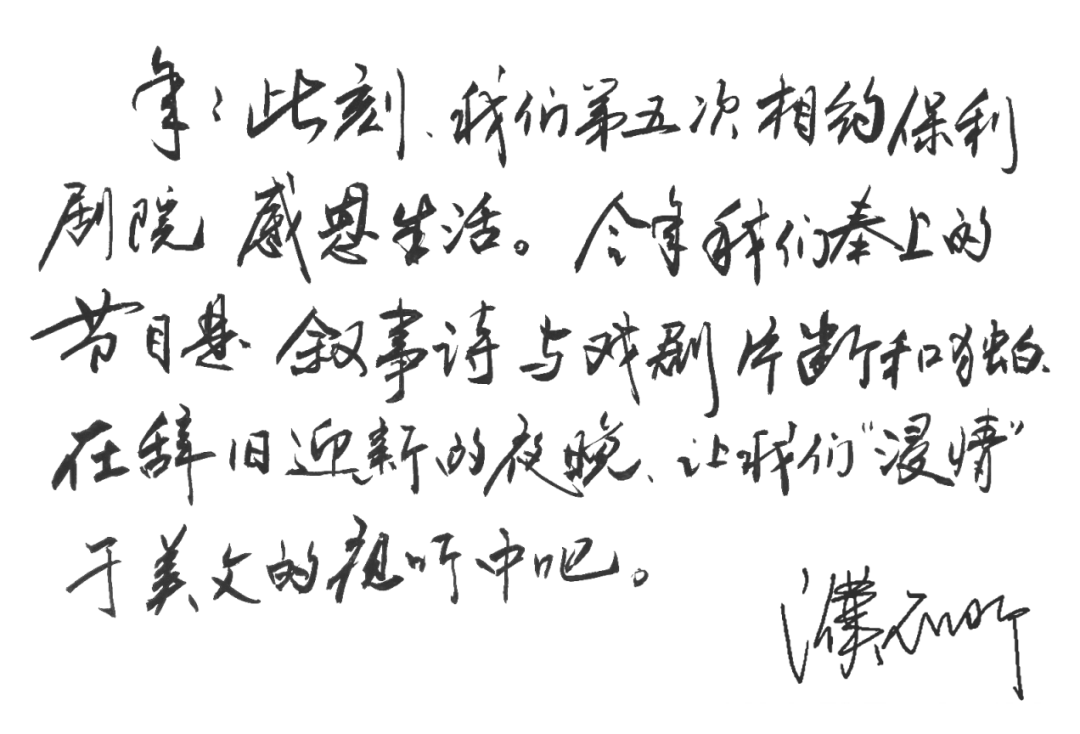 年年此刻、我们第五次相约保利
剧院 感恩生活。今年我们奉上的
节目是 叙事诗与戏剧片断和独白、
在辞旧迎新的夜晚、让我们“浸情”
于美文的视听中吧。
濮存昕